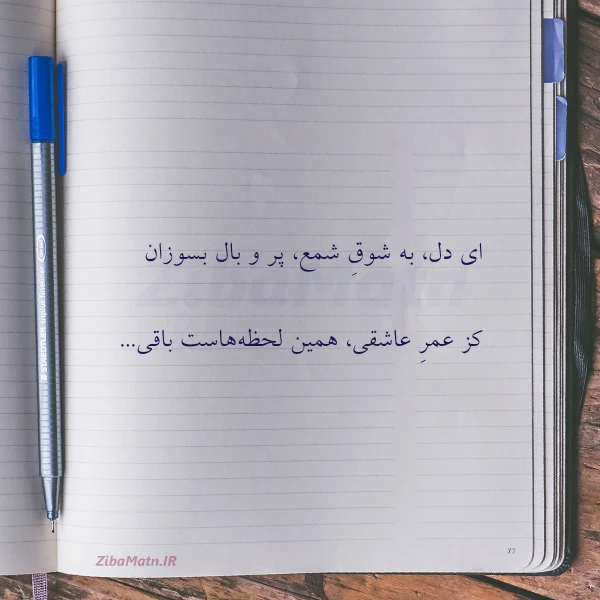 ای دل، به شوقِ شمع، پر و بال بسوزان
کز عمرِ عاشقی، همین لحظه‌هاست باقی...
ZibaMatn
ZibaMatn.IR